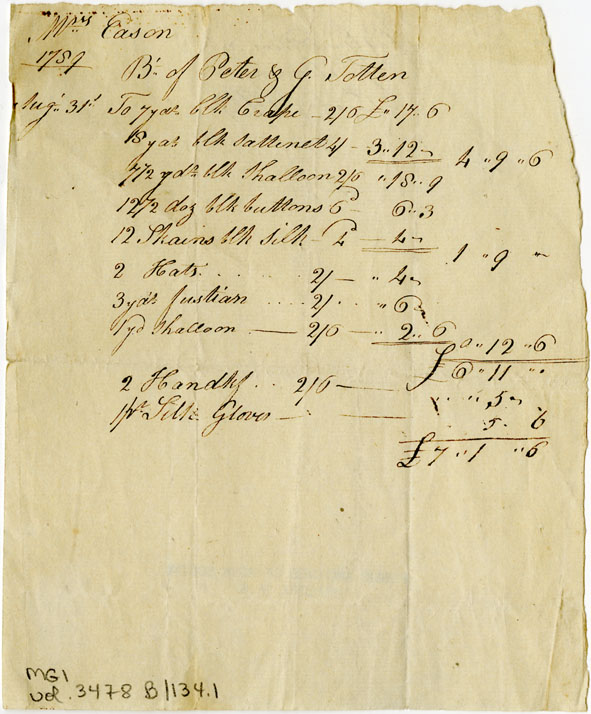 Mrs Eason
1789
Bt. of Peter & G. Totten
Augt. 31st To 7 yds blk Crape - 2/6 £ " 17 " 6
18 yds blk Sattinet 4/ - 3 " 12 " - 4 " 9 " 6
7 1/2 yds blk Shalloon 2/6 " 18 " 9
12 1/2 doz blk buttons 6d - 6 " 3
12 Skains blk Silk - 4d - 4 " - 1 " 9 " "
2 Hats . . . . 2/ - " 4 " -
3 yds fustian . . . . 2/ . . " 6 " -
1 yd Shalloon - 2/6 - " 2 " 6
0 " 12 " 6
£ 6 " 11 " "
2 Handkfs . . 2/6 - " 5 " -
1 pr Silk Gloves - 5 " 6
£ 7 " 1 " 6
MG1
vol. 3478 B/134.1